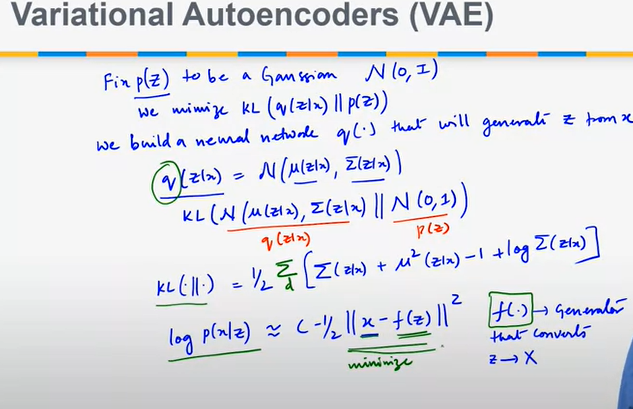 Variational Autoencoders (VAE)
Fix p(z) to be a Gaussian N(0, I)
we minimize KL (q(z|x) || p(z))
we build a neural network q(·) that will generate z from x
q(z|x) = N(μ(z|x), Σ(z|x))
KL(N(μ(z|x), Σ(z|x)) || N(0, I))
q(z|x) p(z)
KL(·||·) = 1/2 Σ_d [Σ(z|x) + μ²(z|x) - 1 + log Σ(z|x)]
log p(x|z) ≈ C - 1/2 ||x - f(z)||²
minimize
f(·) → Generator
that converts
z → X